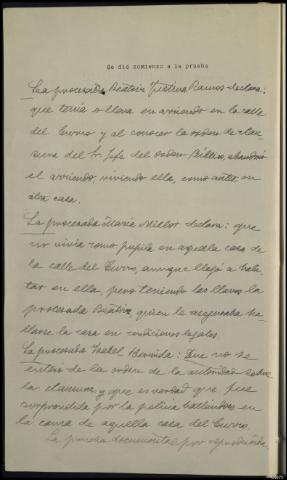 Se dió comienzo a la prueba
La procesada Beatriz Cristina Ramos declara:
que tenía o lleva en arriendo en la calle
del Curro y al conocer la orden de clau-
sura del Sr. Jefe del orden Público, abandonó
el arriendo, viviendo ella, como antes, en
otra casa.
La procesada María Millor declara: que
no vivía como pupila en aquella casa de
la calle del Curro, aunque llegó a habi-
tar en ella pero teniendo las llaves la
procesada Beatriz quien le aseguraba ha-
llarse la casa en condiciones legales.
La procesada Isabel Bermida: Que no se
enteró de la orden de la autoridad sobre
la clausura y que es verdad que fue
sorprendida por la policía hallándose en
la cama de aquella casa del Curro.
La prueba documental por reproducida.